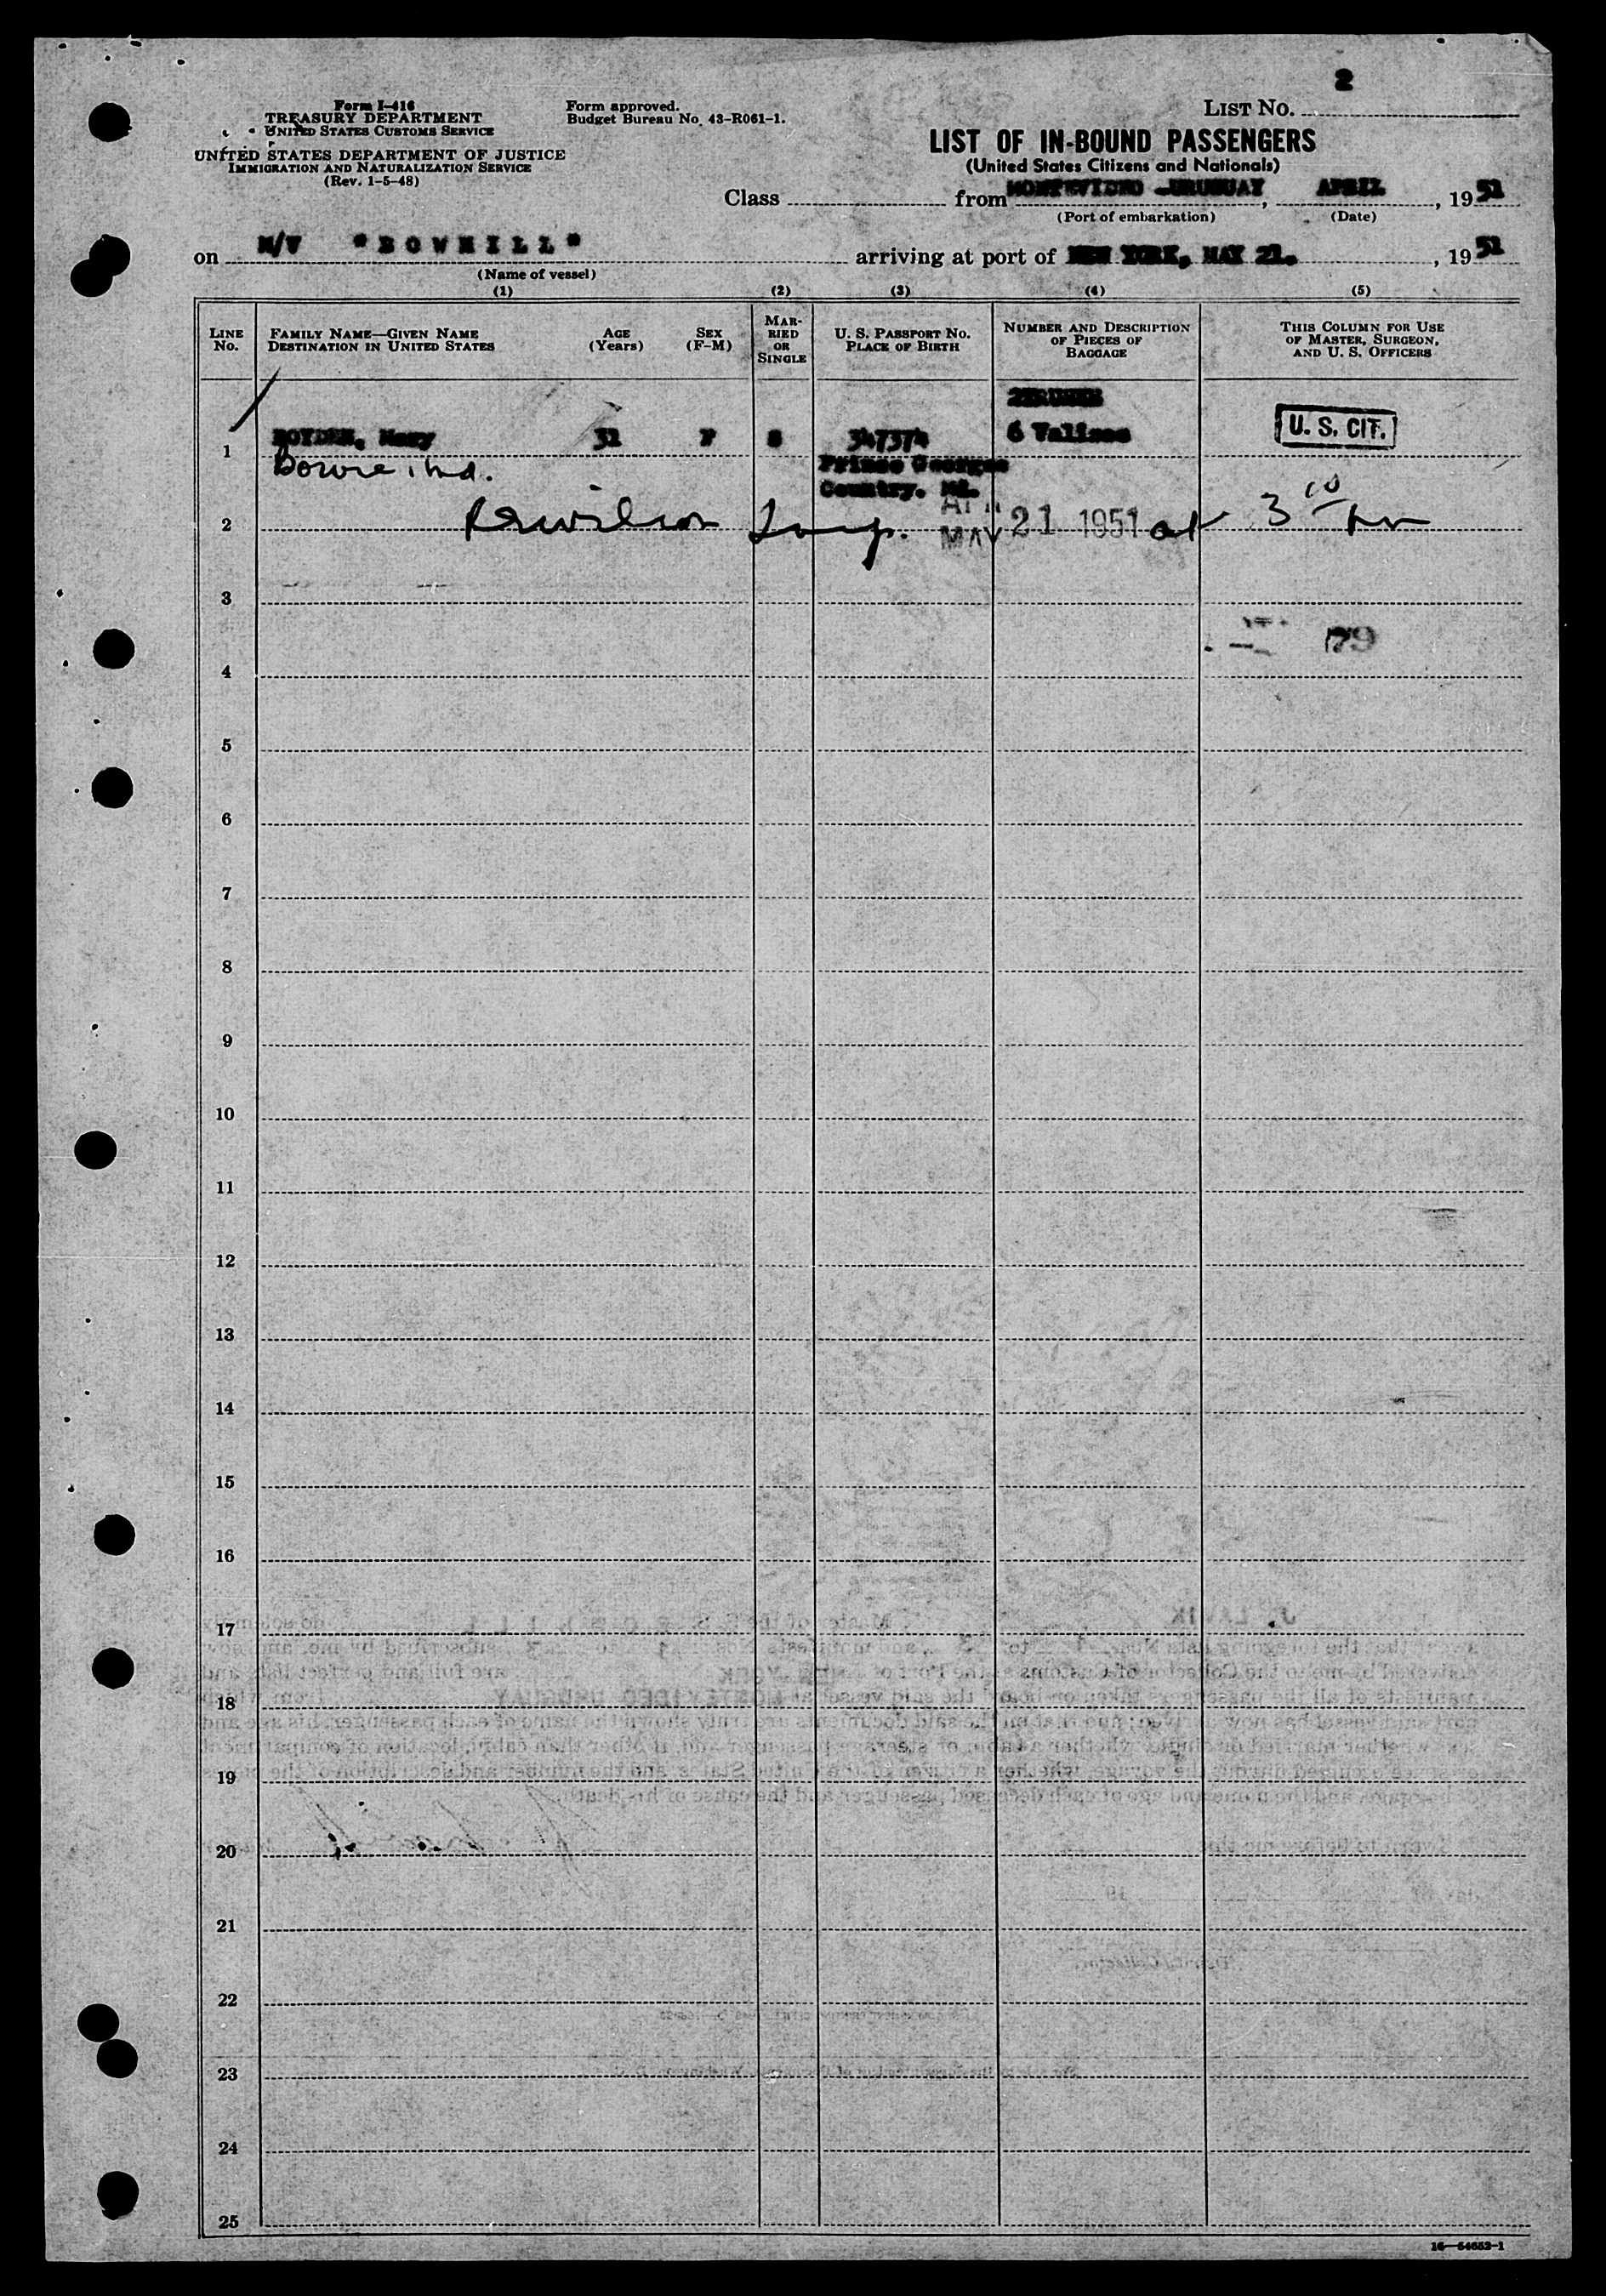 2
Form I-416
TREASURY DEPARTMENT
UNITED STATES CUSTOMS SERVICE
UNITED STATES DEPARTMENT OF JUSTICE
IMMIGRATION AND NATURALIZATION SERVICE
(Rev. 1-5-48)
Form approved.
Budget Bureau No. 43-R061-1.
LIST NO.
LIST OF IN-BOUND PASSENGERS
(United States Citizens and Nationals)
Class from MONTEVIDEO URUGUAY, APRIL, 1951
(Port of embarkation) (Date)
on M/V "BOWHILL" arriving at port of NEW YORK, MAY 21., 1951
(Name of vessel)
(1) (2) (3) (4) (5)
LINE NO.
FAMILY NAME—GIVEN NAME
DESTINATION IN UNITED STATES
AGE (Years)
SEX (F-M)
MARRIED OR SINGLE
U. S. PASSPORT NO.
PLACE OF BIRTH
NUMBER AND DESCRIPTION
OF PIECES OF
BAGGAGE
THIS COLUMN FOR USE
OF MASTER, SURGEON,
AND U. S. OFFICERS
1 BOYDEN, Mary 31 F S 347374 6 Valises U. S. CIT.
Bowie, Md. Prince Georges
Country. Md.
2 Insp. MAY 21 1951 at 3 10 pm
3
79
4
5
6
7
8
9
10
11
12
13
14
15
16
17
18
19
20
21
22
23
24
25
16—54652-1